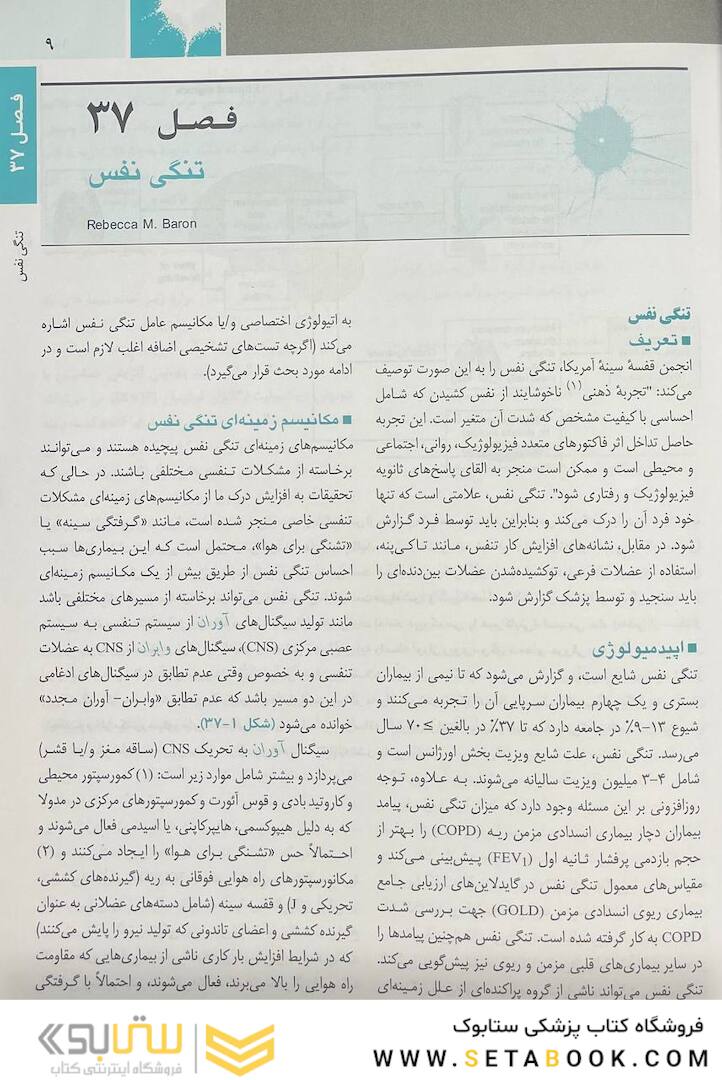 ۹
فصل ۳۷
تنگی نفس
فصل ۳۷
تنگی نفس
Rebecca M. Baron
تنگی نفس
■ تعریف
انجمن قفسهٔ سینهٔ آمریکا، تنگی نفس را به این صورت توصیف
می‌کند: "تجربهٔ ذهنی(۱) ناخوشایند از نفس کشیدن که شامل
احساسی با کیفیت مشخص که شدت آن متغیر است. این تجربه
حاصل تداخل اثر فاکتورهای متعدد فیزیولوژیک، روانی، اجتماعی
و محیطی است و ممکن است منجر به القای پاسخ‌های ثانویه
فیزیولوژیک و رفتاری شود". تنگی نفس، علامتی است که تنها
خود فرد آن را درک می‌کند و بنابراین باید توسط فرد گزارش
شود. در مقابل، نشانه‌های افزایش کار تنفس، مانند تاکی‌پنه،
استفاده از عضلات فرعی، توکشیده‌شدن عضلات بین‌دنده‌ای را
باید سنجید و توسط پزشک گزارش شود.
■ اپیدمیولوژی
تنگی نفس شایع است، و گزارش می‌شود که تا نیمی از بیماران
بستری و یک چهارم بیماران سرپایی آن را تجربه می‌کنند و
شیوع ۱۳-۹٪ در جامعه دارد که تا ۳۷٪ در بالغین ≥۷۰ سال
می‌رسد. تنگی نفس، علت شایع ویزیت بخش اورژانس است و
شامل ۴-۳ میلیون ویزیت سالیانه می‌شوند. به علاوه، توجه
روزافزونی بر این مسئله وجود دارد که میزان تنگی نفس، پیامد
بیماران دچار بیماری انسدادی مزمن ریه (COPD) را بهتر از
حجم بازدمی پرفشار ثانیه اول (FEV1) پیش‌بینی می‌کند و
مقیاس‌های معمول تنگی نفس در گایدلاین‌های ارزیابی جامع
بیماری ریوی انسدادی مزمن (GOLD) جهت بررسی شدت
COPD به کار گرفته شده است. تنگی نفس هم‌چنین پیامدها را
در سایر بیماری‌های قلبی مزمن و ریوی نیز پیش‌گویی می‌کند.
تنگی نفس می‌تواند ناشی از گروه پراکنده‌ای از علل زمینه‌ای
به اتیولوژی اختصاصی و/یا مکانیسم عامل تنگی نفس اشاره
می‌کند (اگرچه تست‌های تشخیصی اضافه اغلب لازم است و در
ادامه مورد بحث قرار می‌گیرد).
■ مکانیسم زمینه‌ای تنگی نفس
مکانیسم‌های زمینه‌ای تنگی نفس پیچیده هستند و می‌توانند
برخاسته از مشکلات تنفسی مختلفی باشند. در حالی که
تحقیقات به افزایش درک ما از مکانیسم‌های زمینه‌ای مشکلات
تنفسی خاصی منجر شده است، مانند «گرفتگی سینه» یا
«تشنگی برای هوا»، محتمل است که این بیماری‌ها سبب
احساس تنگی نفس از طریق بیش از یک مکانیسم زمینه‌ای
شوند. تنگی نفس می‌تواند برخاسته از مسیرهای مختلفی باشد
مانند تولید سیگنال‌های آوران از سیستم تنفسی به سیستم
عصبی مرکزی (CNS)، سیگنال‌های وابران از CNS به عضلات
تنفسی و به خصوص وقتی عدم تطابق در سیگنال‌های ادغامی
در این دو مسیر باشد که عدم تطابق «وابران- آوران مجدد»
خوانده می‌شود (شکل ۱-۳۷).
سیگنال آوران به تحریک CNS (ساقه مغز و/یا قشر)
می‌پردازد و بیشتر شامل موارد زیر است: (۱) کمورسپتور محیطی
و کاروتید بادی و قوس آئورت و کمورسپتورهای مرکزی در مدولا
که به دلیل هیپوکسمی، هایپرکاپنی، یا اسیدمی فعال می‌شوند و
احتمالاً حس «تشنگی برای هوا» را ایجاد می‌کنند و (۲)
مکانورسپتورهای راه هوایی فوقانی به ریه (گیرنده‌های کششی،
تحریکی و J) و قفسه سینه (شامل دسته‌های عضلانی به عنوان
گیرنده کششی و اعضای تاندونی که تولید نیرو را پایش می‌کنند)
که در شرایط افزایش بار کاری ناشی از بیماری‌هایی که مقاومت
راه هوایی را بالا می‌برند، فعال می‌شوند، و احتمالاً با گرفتگی
فروشگاه کتاب پزشکی ستابوک
WWW.SETABOOK.COM
ستابوک
فروشگاه اینترنتی کتاب